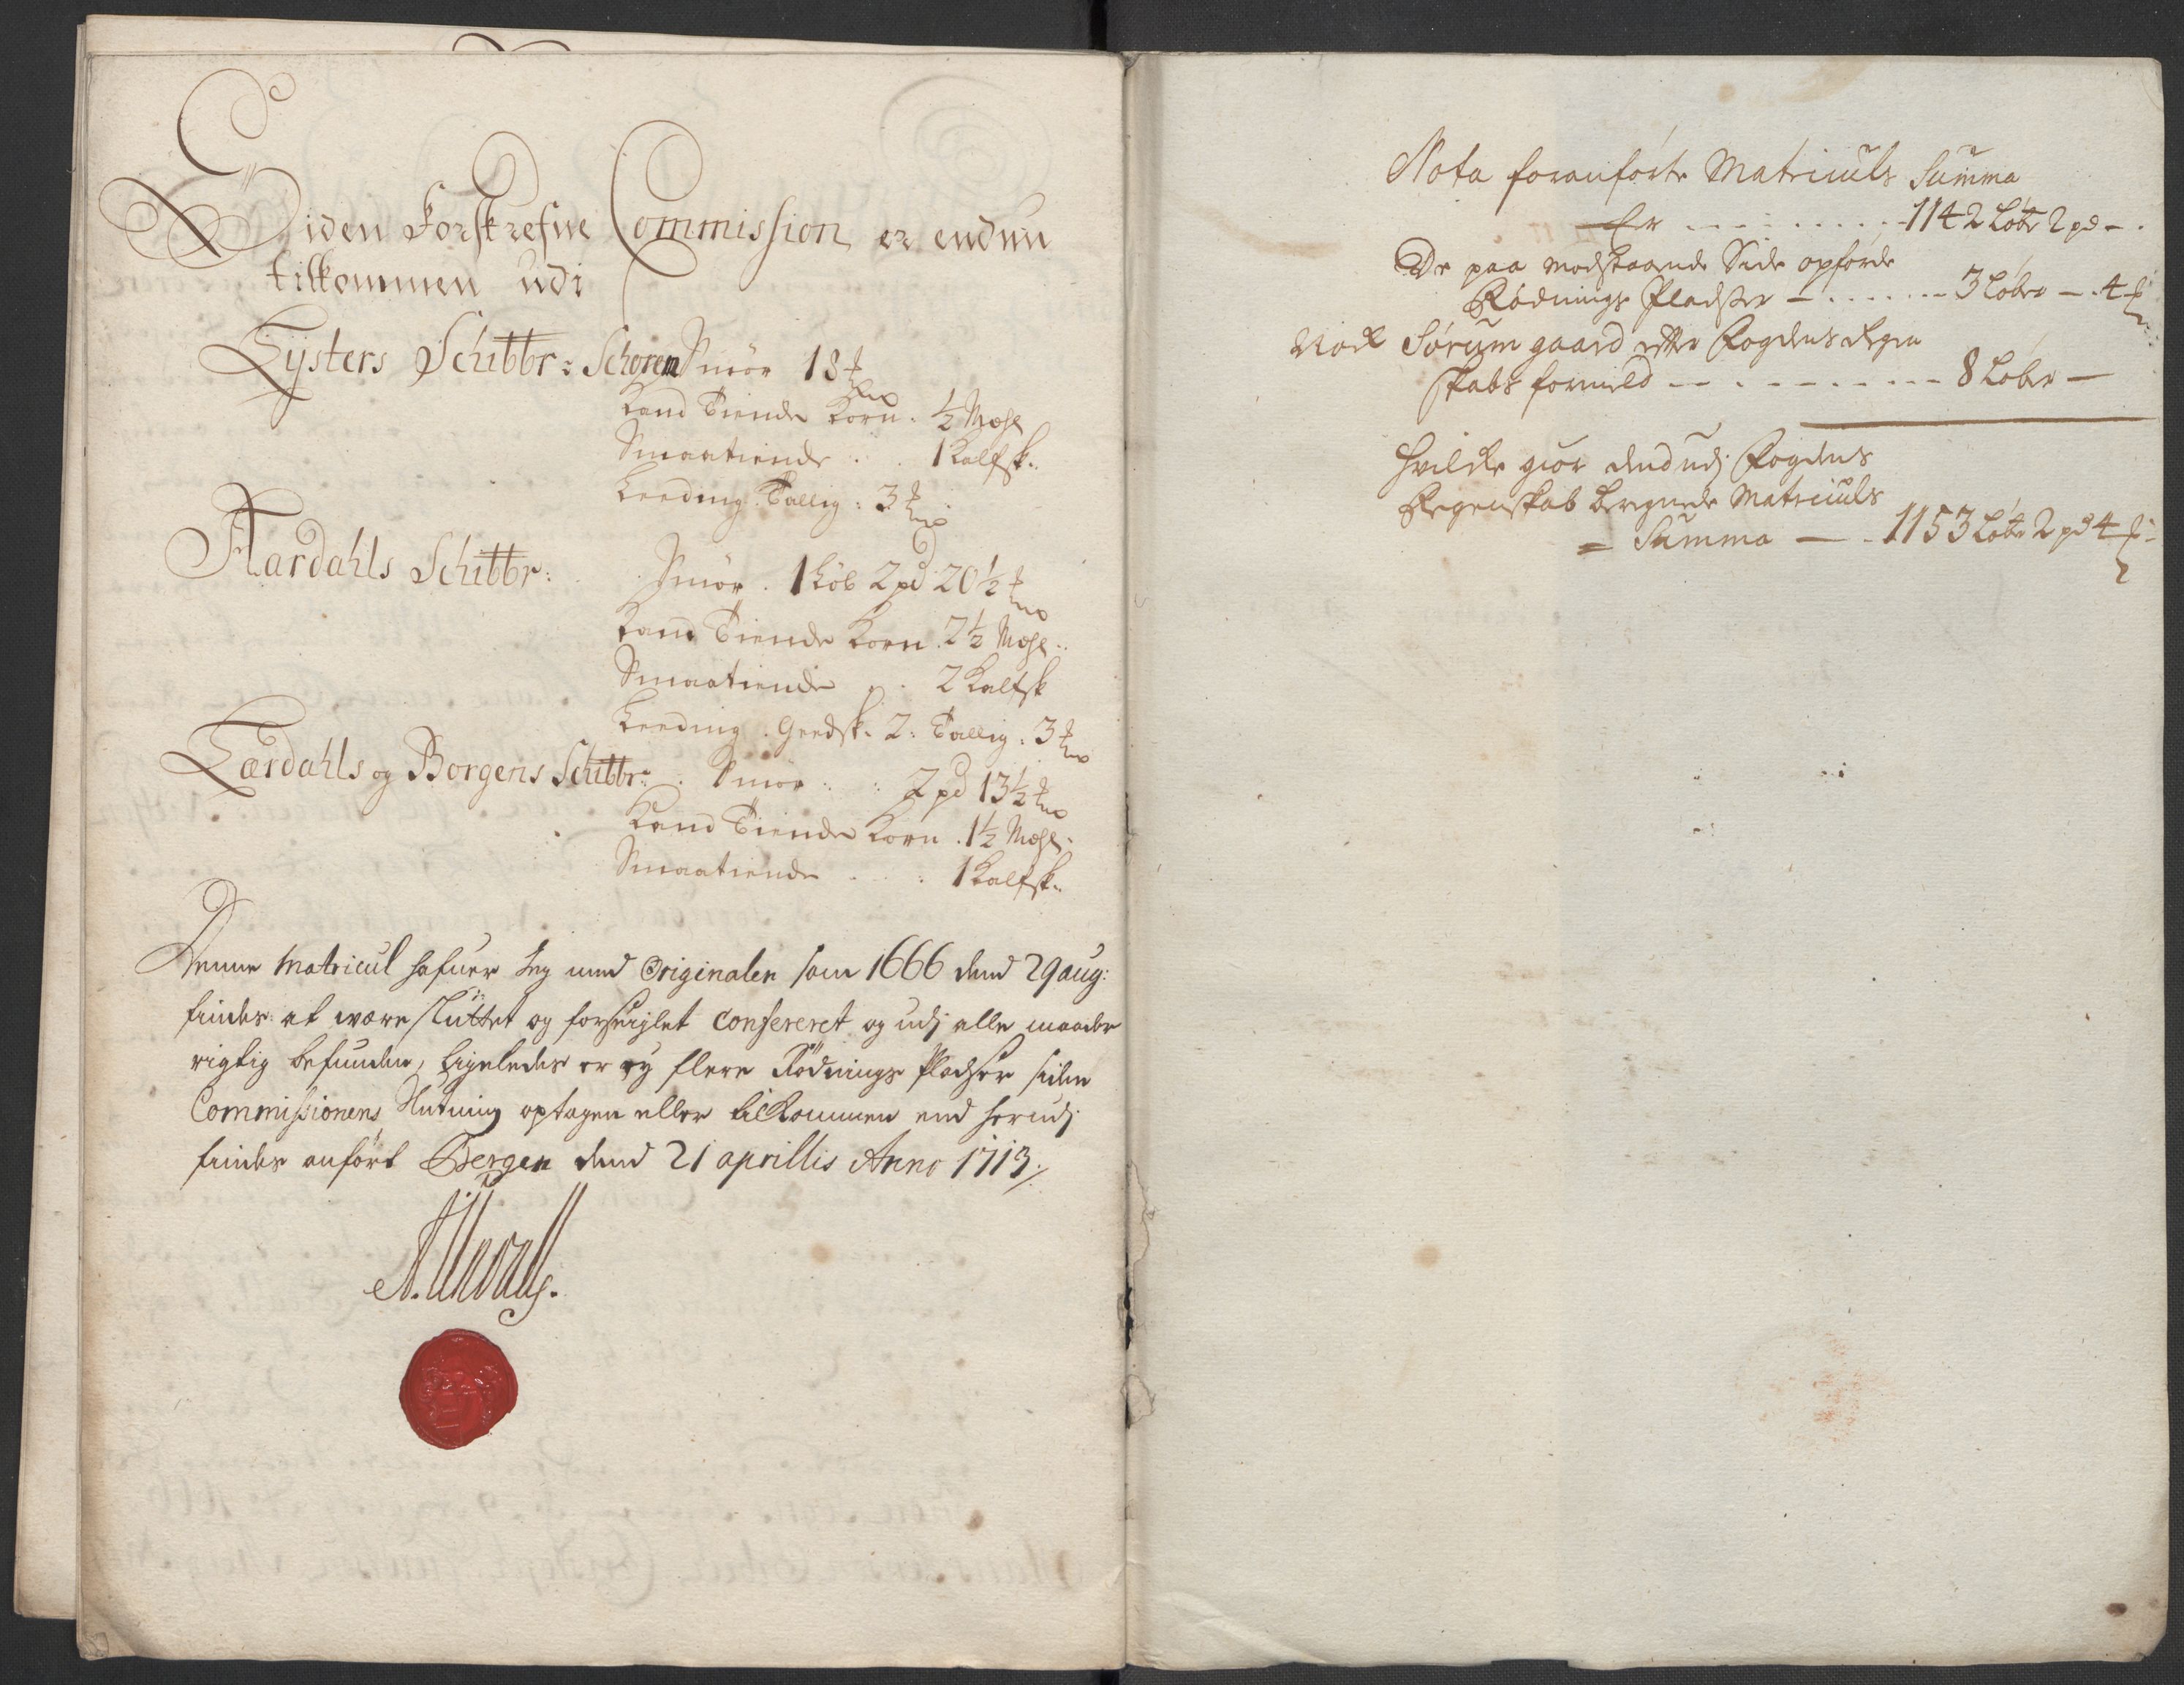 Siden Forskrefne Commission er endnu
tilkommen udi
Lysters Schibbr: Schoren Smör 18 ℔
Land Tiende Korn . ½ Mæhl
Smaatiende . . 1 Kalfsk.
Leeding: Tallig: 3 ℔
Aardahls Schibbr: Smör . 1 Löb 2 pd 20½ ℔
Land Tiende Korn . 2½ Mæhl
Smaatiende . 2 Kalfsk
Leeding . Geedsk. 2: Tallig: 3 ℔
Lærdahls og Borgens Schibbr: Smör . : 2 pd 13½ ℔
Land Tiende Korn . 1½ Mæhl
Smaatiende . . . 1 Kalfsk.
Denne Matricul hafuer Jeg med Originalen som 1666 dend 29 aug:
findes at være sluttet og forseiglet Confereret og udj alle maader
rigtig befunden, Ligeledes er ey flere Rödnings Pladser siden
Commissionens Slutning optagen eller tilkommen end herudj
findes anfört Bergen dend 21 aprillis Anno 1713 ./
Nota foranförte Matriculs Summa
Er - - - - - - 1142 Löbr 2 pd - .
De paa modstaaende Side opförde
Rödnings Pladser - . . . . . . 3 Löber - . 4 ℔
Nock Sörum gaard efter Fogdens Regen
skabs formeld - - . - - - - - - 8 Löber -
Hvilcke giör dend udj Fogdens
Regenskab beregnede Matriculs
= Summa - . 1153 Löbr 2 pd 4 ℔